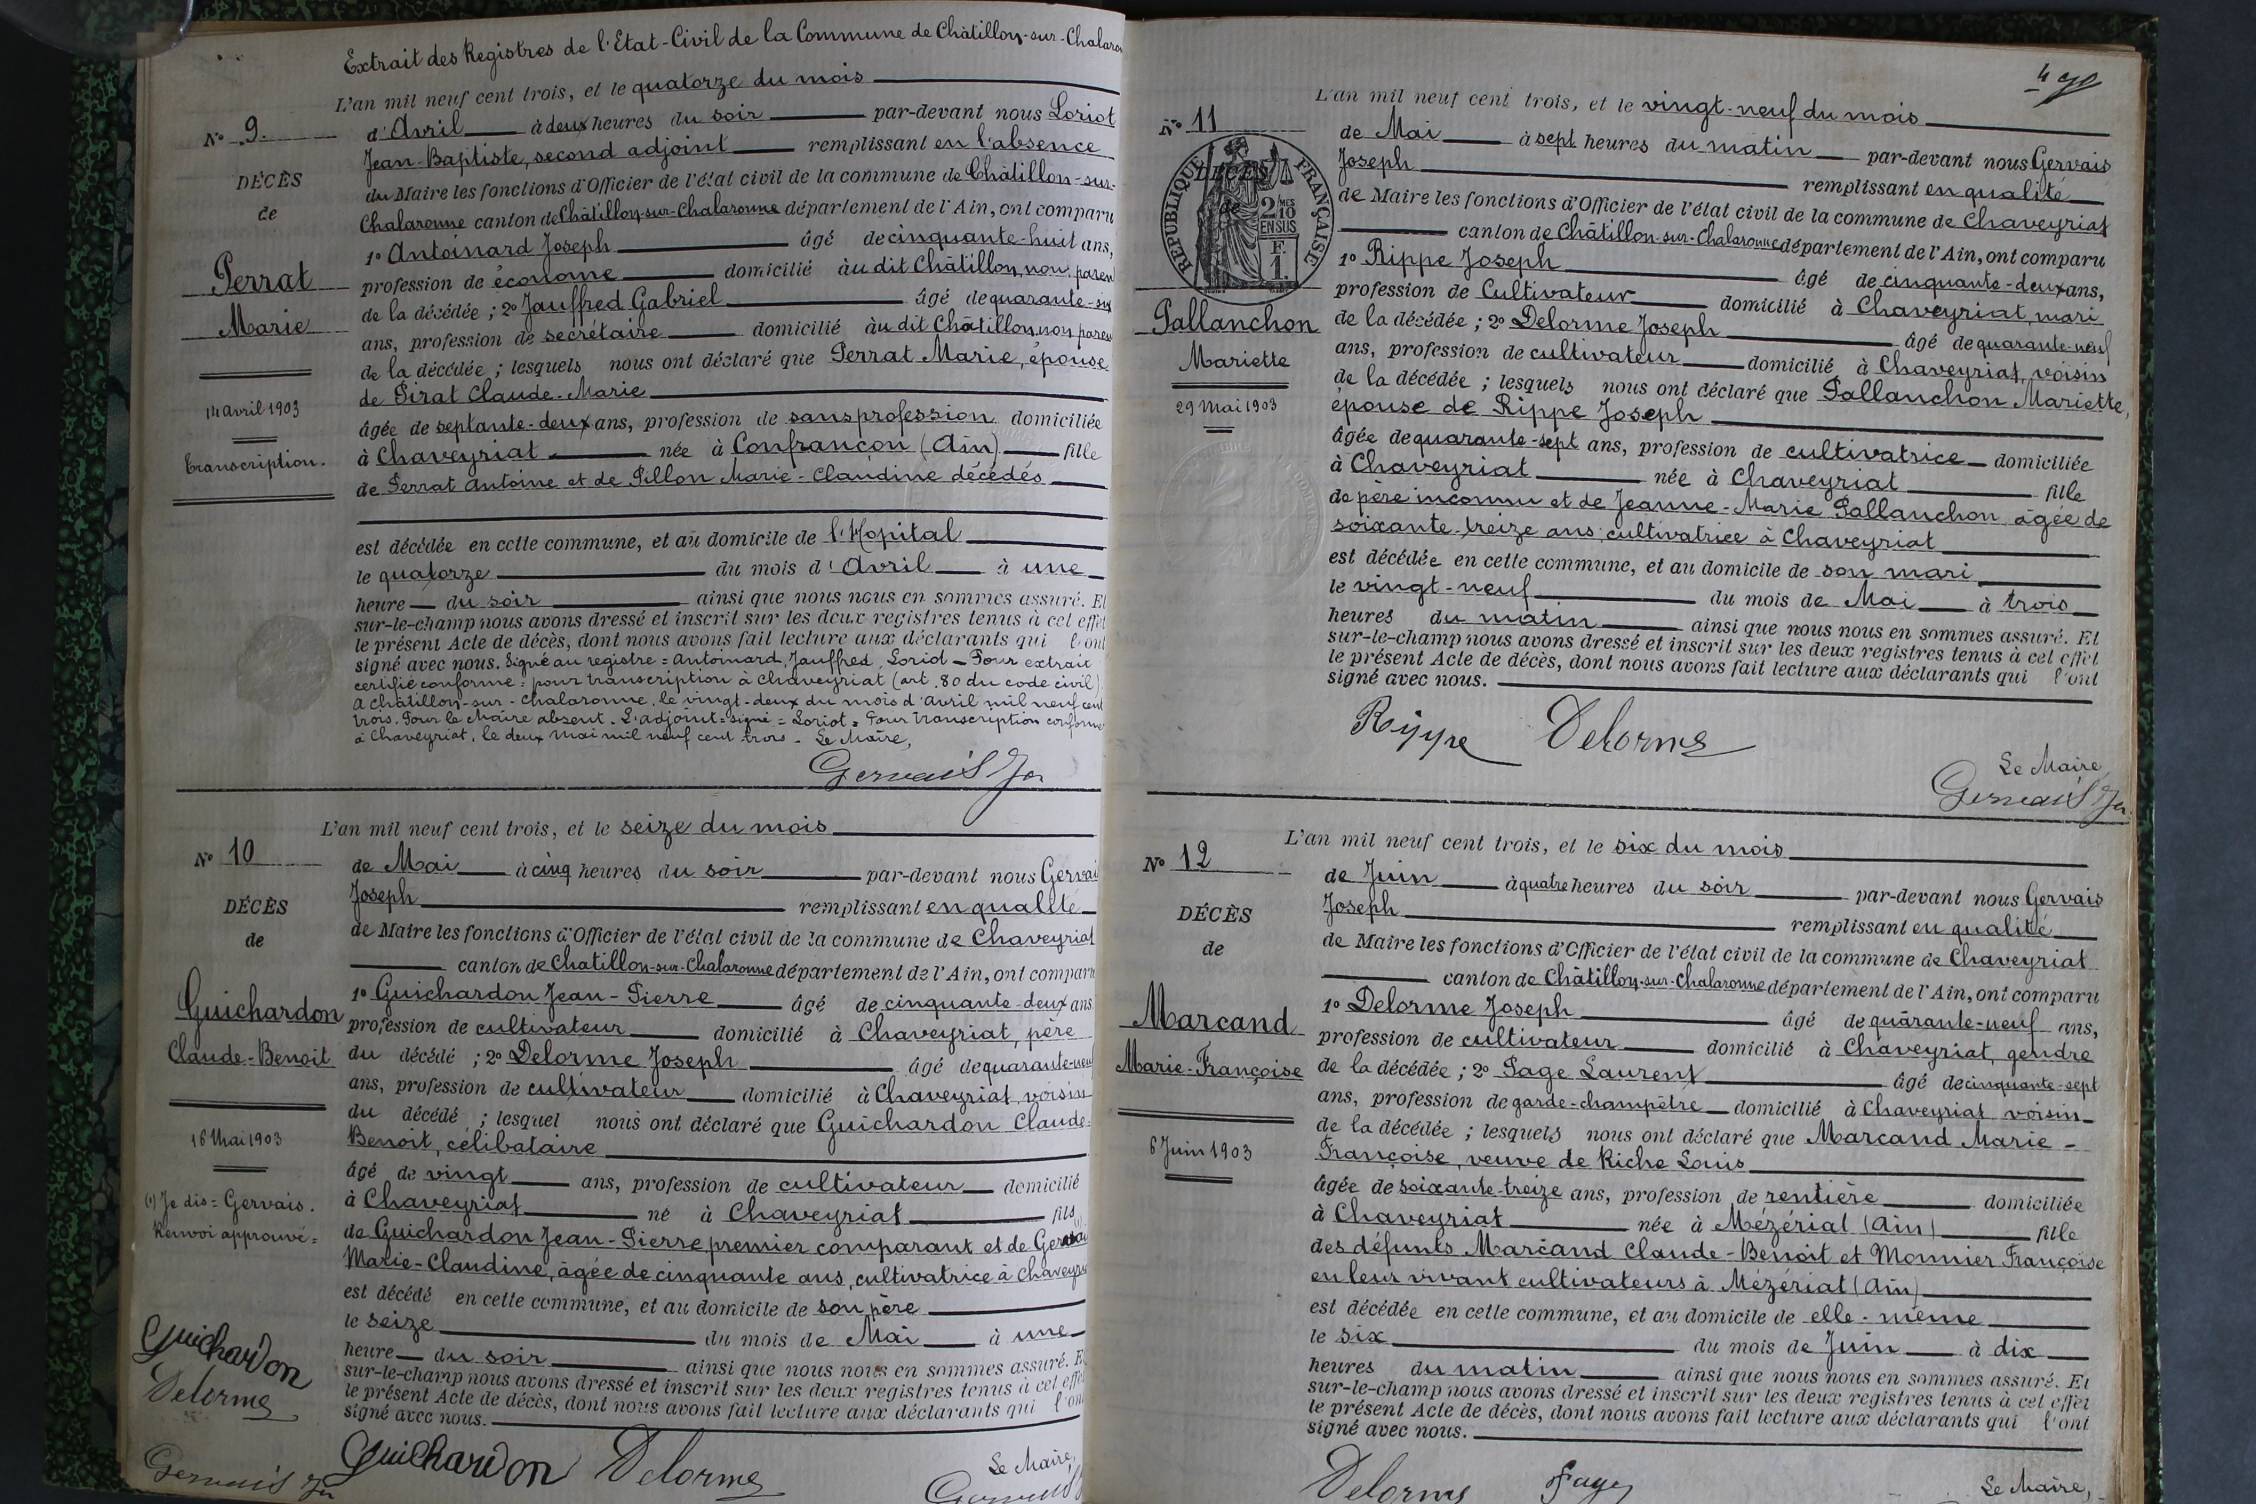 Extrait des Registres de l'Etat-Civil de la Commune de Châtillon-sur-Chalaron
L'an mil neuf cent trois, et le quatorze du mois
N° 9.
d'Avril à deux heures du soir par-devant nous Loriot
Jean-Baptiste, second adjoint remplissant en l'absence
DÉCÈS
du Maire les fonctions d'Officier de l'état civil de la commune de Châtillon-sur-
de
Chalaronne canton de Châtillon-sur-Chalaronne département de l'Ain, ont comparu
1° Antoinard Joseph âgé de cinquante-huit ans,
Perrat
profession de économe domicilié à au dit Châtillon, non paren
de la décédée ; 2° Jauffred Gabriel âgé de quarante-six
Marie
ans, profession de secrétaire domicilié à au dit Châtillon, non paren
de la décédée ; lesquels nous ont déclaré que Perrat Marie, épouse
de Pirat Claude-Marie
14 avril 1903
âgée de septante-deux ans, profession de sans profession domiciliée
à Chaveyriat née à Confrançon (Ain) fille
transcription.
de Perrat Antoine et de Pillon Marie-Claudine décédés
est décédée en cette commune, et au domicile de l'Hopital
le quatorze du mois d'Avril à une
heure du soir ainsi que nous nous en sommes assuré. Et
sur-le-champ nous avons dressé et inscrit sur les deux registres tenus à cet effet
le présent Acte de décès, dont nous avons fait lecture aux déclarants qui l'ont
signé avec nous. Signé au registre = Antoinard, Jauffred, Loriot – Pour extrait
certifié conforme = pour transcription à Chaveyriat (art. 80 du code civil)
A Châtillon-sur-Chalaronne, le vingt-deux du mois d'Avril mil neuf cent
trois. Pour le Maire absent. L'adjoint = signé = Loriot = Pour transcription conforme
à Chaveyriat, le deux Mai mil neuf cent trois. Le Maire,
Gervais Jh
L'an mil neuf cent trois, et le seize du mois
N° 10
de Mai à cinq heures du soir par-devant nous Gervai
Joseph remplissant en qualité
DÉCÈS
de Maire les fonctions d'Officier de l'état civil de la commune de Chaveyriat
de
canton de Chatillon-sur-Chalaronne département de l'Ain, ont comparu
1° Guichardon Jean-Pierre âgé de cinquante-deux ans
Guichardon
profession de cultivateur domicilié à Chaveyriat, père
Claude-Benoit
du décédé ; 2° Delorme Joseph âgé de quarante-neuf
ans, profession de cultivateur domicilié à Chaveyriat, voisin
du décédé ; lesquel nous ont déclaré que Guichardon Claude-
16 Mai 1903
Benoit, célibataire
âgé de vingt ans, profession de cultivateur domicilié
(1) Je dis = Gervais.
à Chaveyriat né à Chaveyriat fils
Renvoi approuvé =
de Guichardon Jean-Pierre premier comparant et de (1)
Marie-Claudine, âgée de cinquante ans, cultivatrice à Chaveyri
est décédé en cette commune, et au domicile de son père
le seize du mois de Mai à une
heure du soir ainsi que nous nous en sommes assuré. Et
sur-le-champ nous avons dressé et inscrit sur les deux registres tenus à cet effet
le présent Acte de décès, dont nous avons fait lecture aux déclarants qui l'ont
signé avec nous.
Guichardon
Delorme
Gervais Jh
Guichardon Delorme
Le Maire,
Gervais
4
L'an mil neuf cent trois, et le vingt-neuf du mois
N° 11
de Mai à sept heures du matin par-devant nous Gervais
Joseph remplissant en qualité
RÉPUBLIQUE FRANÇAISE
DÉCÈS
de
2/10 MES EN SUS
F. 1.
de Maire les fonctions d'Officier de l'état civil de la commune de Chaveyriat
canton de Châtillon-sur-Chalaronne département de l'Ain, ont comparu
1° Rippe Joseph âgé de cinquante-deux ans,
profession de Cultivateur domicilié à Chaveyriat, mari
Pallanchon
de la décédée ; 2° Delorme Joseph âgé de quarante-neuf
Mariette
ans, profession de cultivateur domicilié à Chaveyriat, voisin
de la décédée ; lesquels nous ont déclaré que Pallanchon Mariette,
29 Mai 1903
épouse de Rippe Joseph
âgée de quarante-sept ans, profession de cultivatrice domiciliée
à Chaveyriat née à Chaveyriat fille
de père inconnu et de Jeanne-Marie Pallanchon, âgée de
soixante-treize ans, cultivatrice à Chaveyriat
est décédée en cette commune, et au domicile de son mari
le vingt-neuf du mois de Mai à trois
heures du matin ainsi que nous nous en sommes assuré. Et
sur-le-champ nous avons dressé et inscrit sur les deux registres tenus à cet effet
le présent Acte de décès, dont nous avons fait lecture aux déclarants qui l'ont
signé avec nous.
Rippe Delorme
Le Maire
Gervais Jh
L'an mil neuf cent trois, et le six du mois
N° 12
de Juin à quatre heures du soir par-devant nous Gervais
Joseph remplissant en qualité
DÉCÈS
de Maire les fonctions d'Officier de l'état civil de la commune de Chaveyriat
de
canton de Châtillon-sur-Chalaronne département de l'Ain, ont comparu
1° Delorme Joseph âgé de quarante-neuf ans,
Marcand
profession de cultivateur domicilié à Chaveyriat, gendre
Marie-Françoise
de la décédée ; 2° Page Laurent âgé de cinquante-sept
ans, profession de garde-champêtre domicilié à Chaveyriat voisin
de la décédée ; lesquels nous ont déclaré que Marcand Marie-
6 Juin 1903
Françoise, veuve de Riche Louis
âgée de soixante-treize ans, profession de rentière domiciliée
à Chaveyriat née à Mézériat (Ain) fille
des défunts Marcand Claude-Benoit et Monnier Françoise
en leur vivant cultivateurs à Mézériat (Ain)
est décédée en cette commune, et au domicile de elle-même
le six du mois de Juin à dix
heures du matin ainsi que nous nous en sommes assuré. Et
sur-le-champ nous avons dressé et inscrit sur les deux registres tenus à cet effet
le présent Acte de décès, dont nous avons fait lecture aux déclarants qui l'ont
signé avec nous.
Delorme Page
Le Maire,